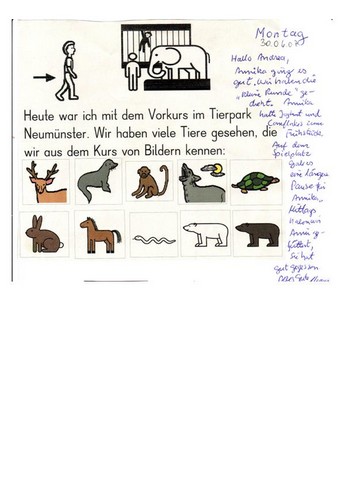 Montag
30.04.07
Hallo Andrea,
Annika ging es
gut. Wir haben die
"kleine Runde" ge-
dreht. Annika
hatte Joghurt und
Cornflakes zum
Frühstück.
Auf dem
Spielplatz
gab es
eine längere
Pause für
Annika.
Mittags
gut gegessen
Heute war ich mit dem Vorkurs im Tierpark
Neumünster. Wir haben viele Tiere gesehen, die
wir aus dem Kurs von Bildern kennen: